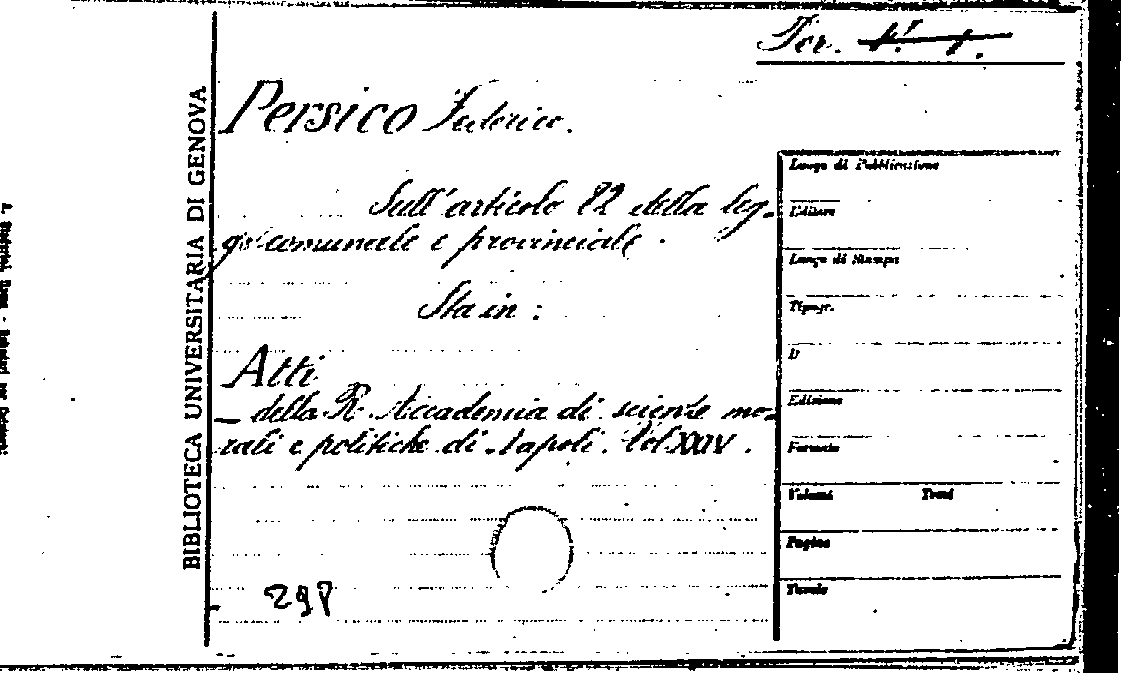 Per.
BIBLIOTECA UNIVERSITARIA DI GENOVA
Persico Federico.
Sull'articolo 82 della leg-
ge comunale e provinciale.
Sta in:
Atti
della R. Accademia di scienze mo-
rali e politiche di Napoli. Vol XXIV.
298
Luogo di Pubblicazione
Editore
Luogo di Stampa
Tipogr.
D
Edizione
Formato
Volumi Tomi
Pagine
Tavole